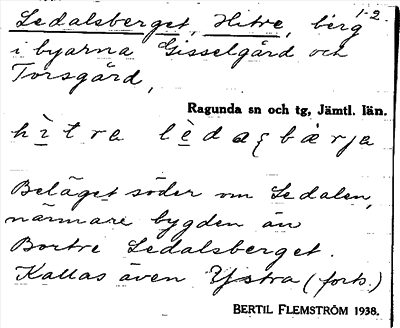 Ledalsberget, Hitre, berg 1-2.
i byarna Gisselgård och
Torsgård,
Ragunda sn och tg, Jämtl. län.
hìtra lèdaꜱbærja
Beläget söder om Ledalen,
närmare bygden än
Bortre Ledalsberget.
Kallas även Ystra (forts.)
BERTIL FLEMSTRÖM 1938.